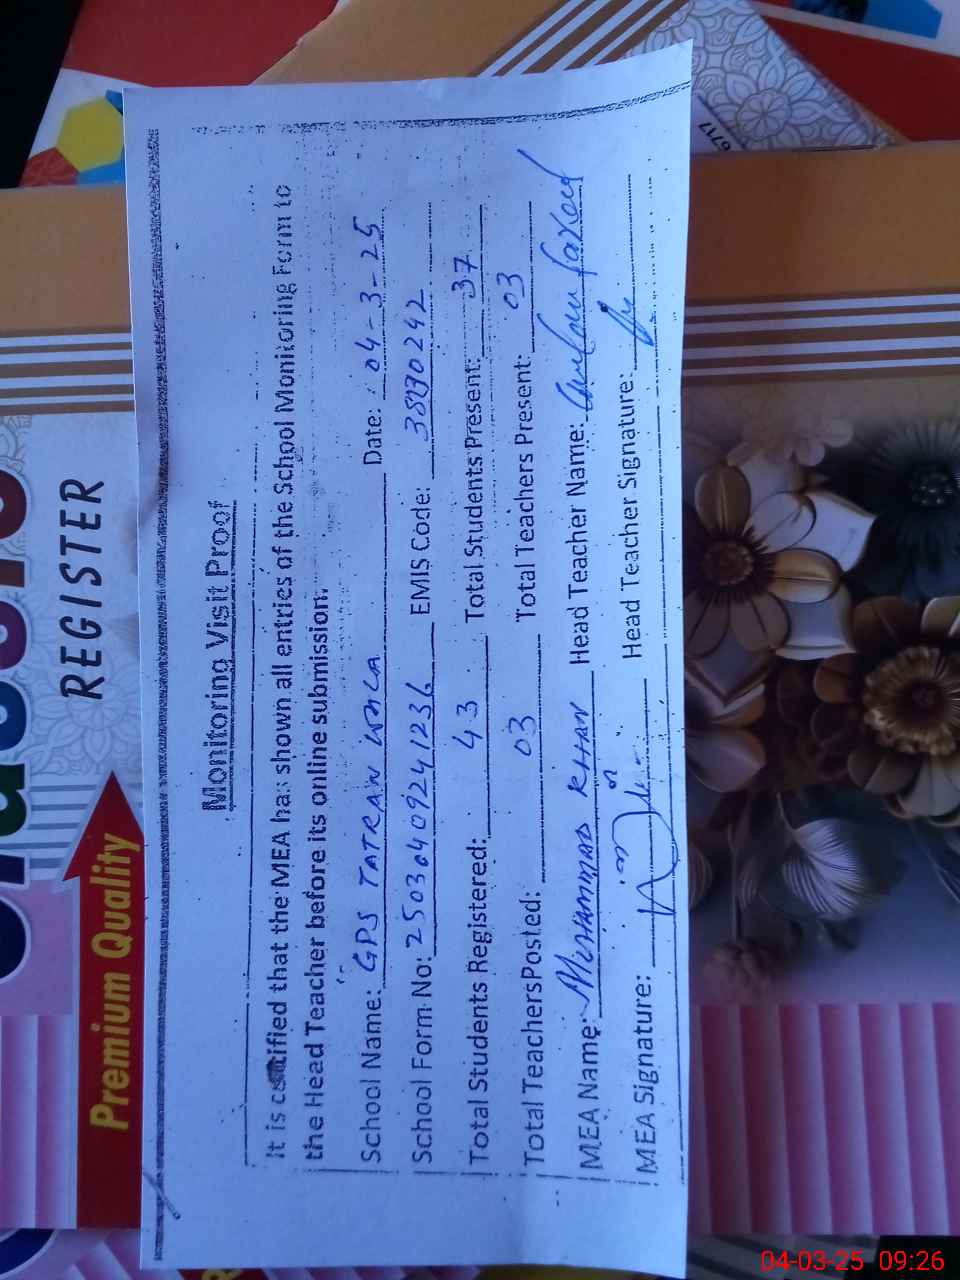 Monitoring Visit Proof
It is certified that the MEA has shown all entries of the School Monitoring Form to
the Head Teacher before its online submission.
School Name: GPS TATRAN WALA Date: 04-3-25
School Form No: 25030409241236 EMIS Code: 38130242
Total Students Registered: 43 Total Students Present: 37
Total Teachers Posted: 03 Total Teachers Present: 03
MEA Name: MUHAMMAD KHAN Head Teacher Name:
MEA Signature: Head Teacher Signature:
REGISTER
Premium Quality
6717
04-03-25 09:26